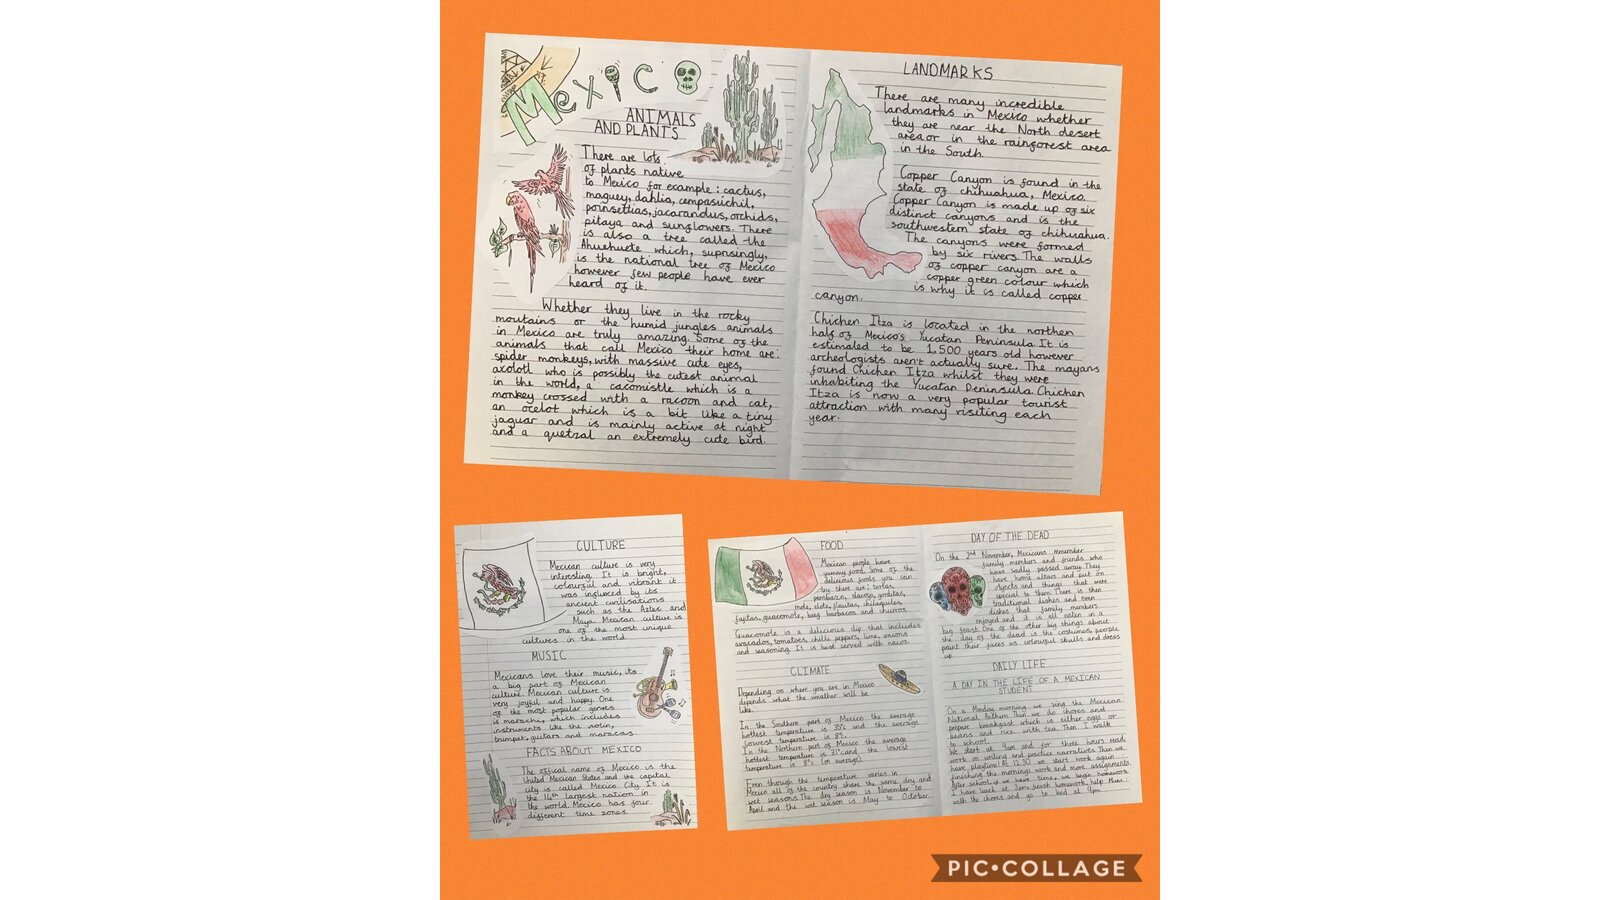 Mexico
ANIMALS
AND PLANTS
There are lots
of plants native
to Mexico for example : cactus,
maguey, dahlia, cempasuichil,
poinsettias, jacarandus, orchids,
pitaya and sunflowers. There
is also a tree called the
Ahuehuete which, suprisingly,
is the national tree of Mexico
however few people have ever
heard of it.
Whether they live in the rocky
moutains or the humid jungles animals
in Mexico are truly amazing. Some of the
animals that call Mexico their home are:
spider monkeys, with massive cute eyes,
axolotl who is possibly the cutest animal
in the world, a cacomistle which is a
monkey crossed with a racoon and cat,
an ocelot which is a bit like a tiny
jaguar and is mainly active at night
and a quetzal an extremely cute bird.
LANDMARKS
There are many incredible
landmarks in Mexico whether
they are near the North desert
area or in the rainforest area
in the South.
Copper Canyon is found in the
state of chihuahua, Mexico.
Copper Canyon is made up of six
distinct canyons and is the
southwestern state of chihuahua.
The canyons were formed
by six rivers. The walls
of copper canyon are a
copper green colour which
is why it is called copper
canyon.
Chichen Itza is located in the northen
half of Mexico's Yucatan Peninsula. It is
estimated to be 1,500 years old however
archeologists aren't actually sure. The mayans
found Chichen Itza whilst they were
inhabiting the Yucatan Peninsula. Chichen
Itza is now a very popular tourist
attraction with many visiting each
year.
CULTURE
Mexican culture is very
interesting. It is bright,
colourful and vibrant it
was influced by its
ancient civilisations
such as the Aztec and
Maya. Mexican culture is
one of the most unique
cultures in the world.
MUSIC
Mexicans love their music, its
a big part of Mexican
culture. Mexican culture is
very joyful and happy. One
of the most popular genres
is marachi, which includes
instruments like the violin,
trumpet, guitars and maracas.
FACTS ABOUT MEXICO
The offical name of Mexico is the
United Mexican States and the capital
city is called Mexico City. It is
the 14th largest nation in
the world. Mexico has four
different time zones.
FOOD
Mexican people have
yummy food. Some of the
delicious foods you can
try there are: tortas,
pambazo, tlacoyo, gorditas,
mole, elote, flautas, chilaquiles,
fajitas, guacomole, beef barbacoa and churros.
Guacomole is a delicious dip that includes
avacados, tomatoes, chilli peppers, lime, onions
and seasoning. It is best served with nacos.
CLIMATE
Depending on where you are in Mexico
depends what the weather will be
like.
In the Southern part of Mexico the average
hottest temperature is 35°c and the average
lowest temperature is 8°c.
In the Northern part of Mexico the average
hottest temperature is 31°c and the lowest
temperature is 8°c (on average)
Even though the temperature varies in
Mexico all of the country share the same dry and
wet seasons. The dry season is November to
April and the wet season is May to October.
DAY OF THE DEAD
On the 2nd November, Mexicans remember
family members and friends who
have sadly passed away. They
have home altars and put on
objects and things that were
special to them. There is then
traditional dishes and even
dishes that family members
enjoyed and it is all eaten in a
big feast. One of the other big things about
the day of the dead is the costumes, people
paint their faces as colourful skulls and dress
up.
DAILY LIFE
A DAY IN THE LIFE OF A MEXICAN
STUDENT
On a Monday morning we sing the Mexican
National Anthem. Then we do chores and
prepare breakfast which is either eggs or
beans and rice with tea. Then I walk
to school.
We start at 9am and for three hours read,
work on writing and practice narratives. Then we
have playtime. At 12.30 we start work again
finishing the mornings work and more assignments.
After school, if we have time, we begin homework.
I have lunch at 3pm, finish homework, help Mum
with the chores and go to bed at 9pm.
PIC•COLLAGE